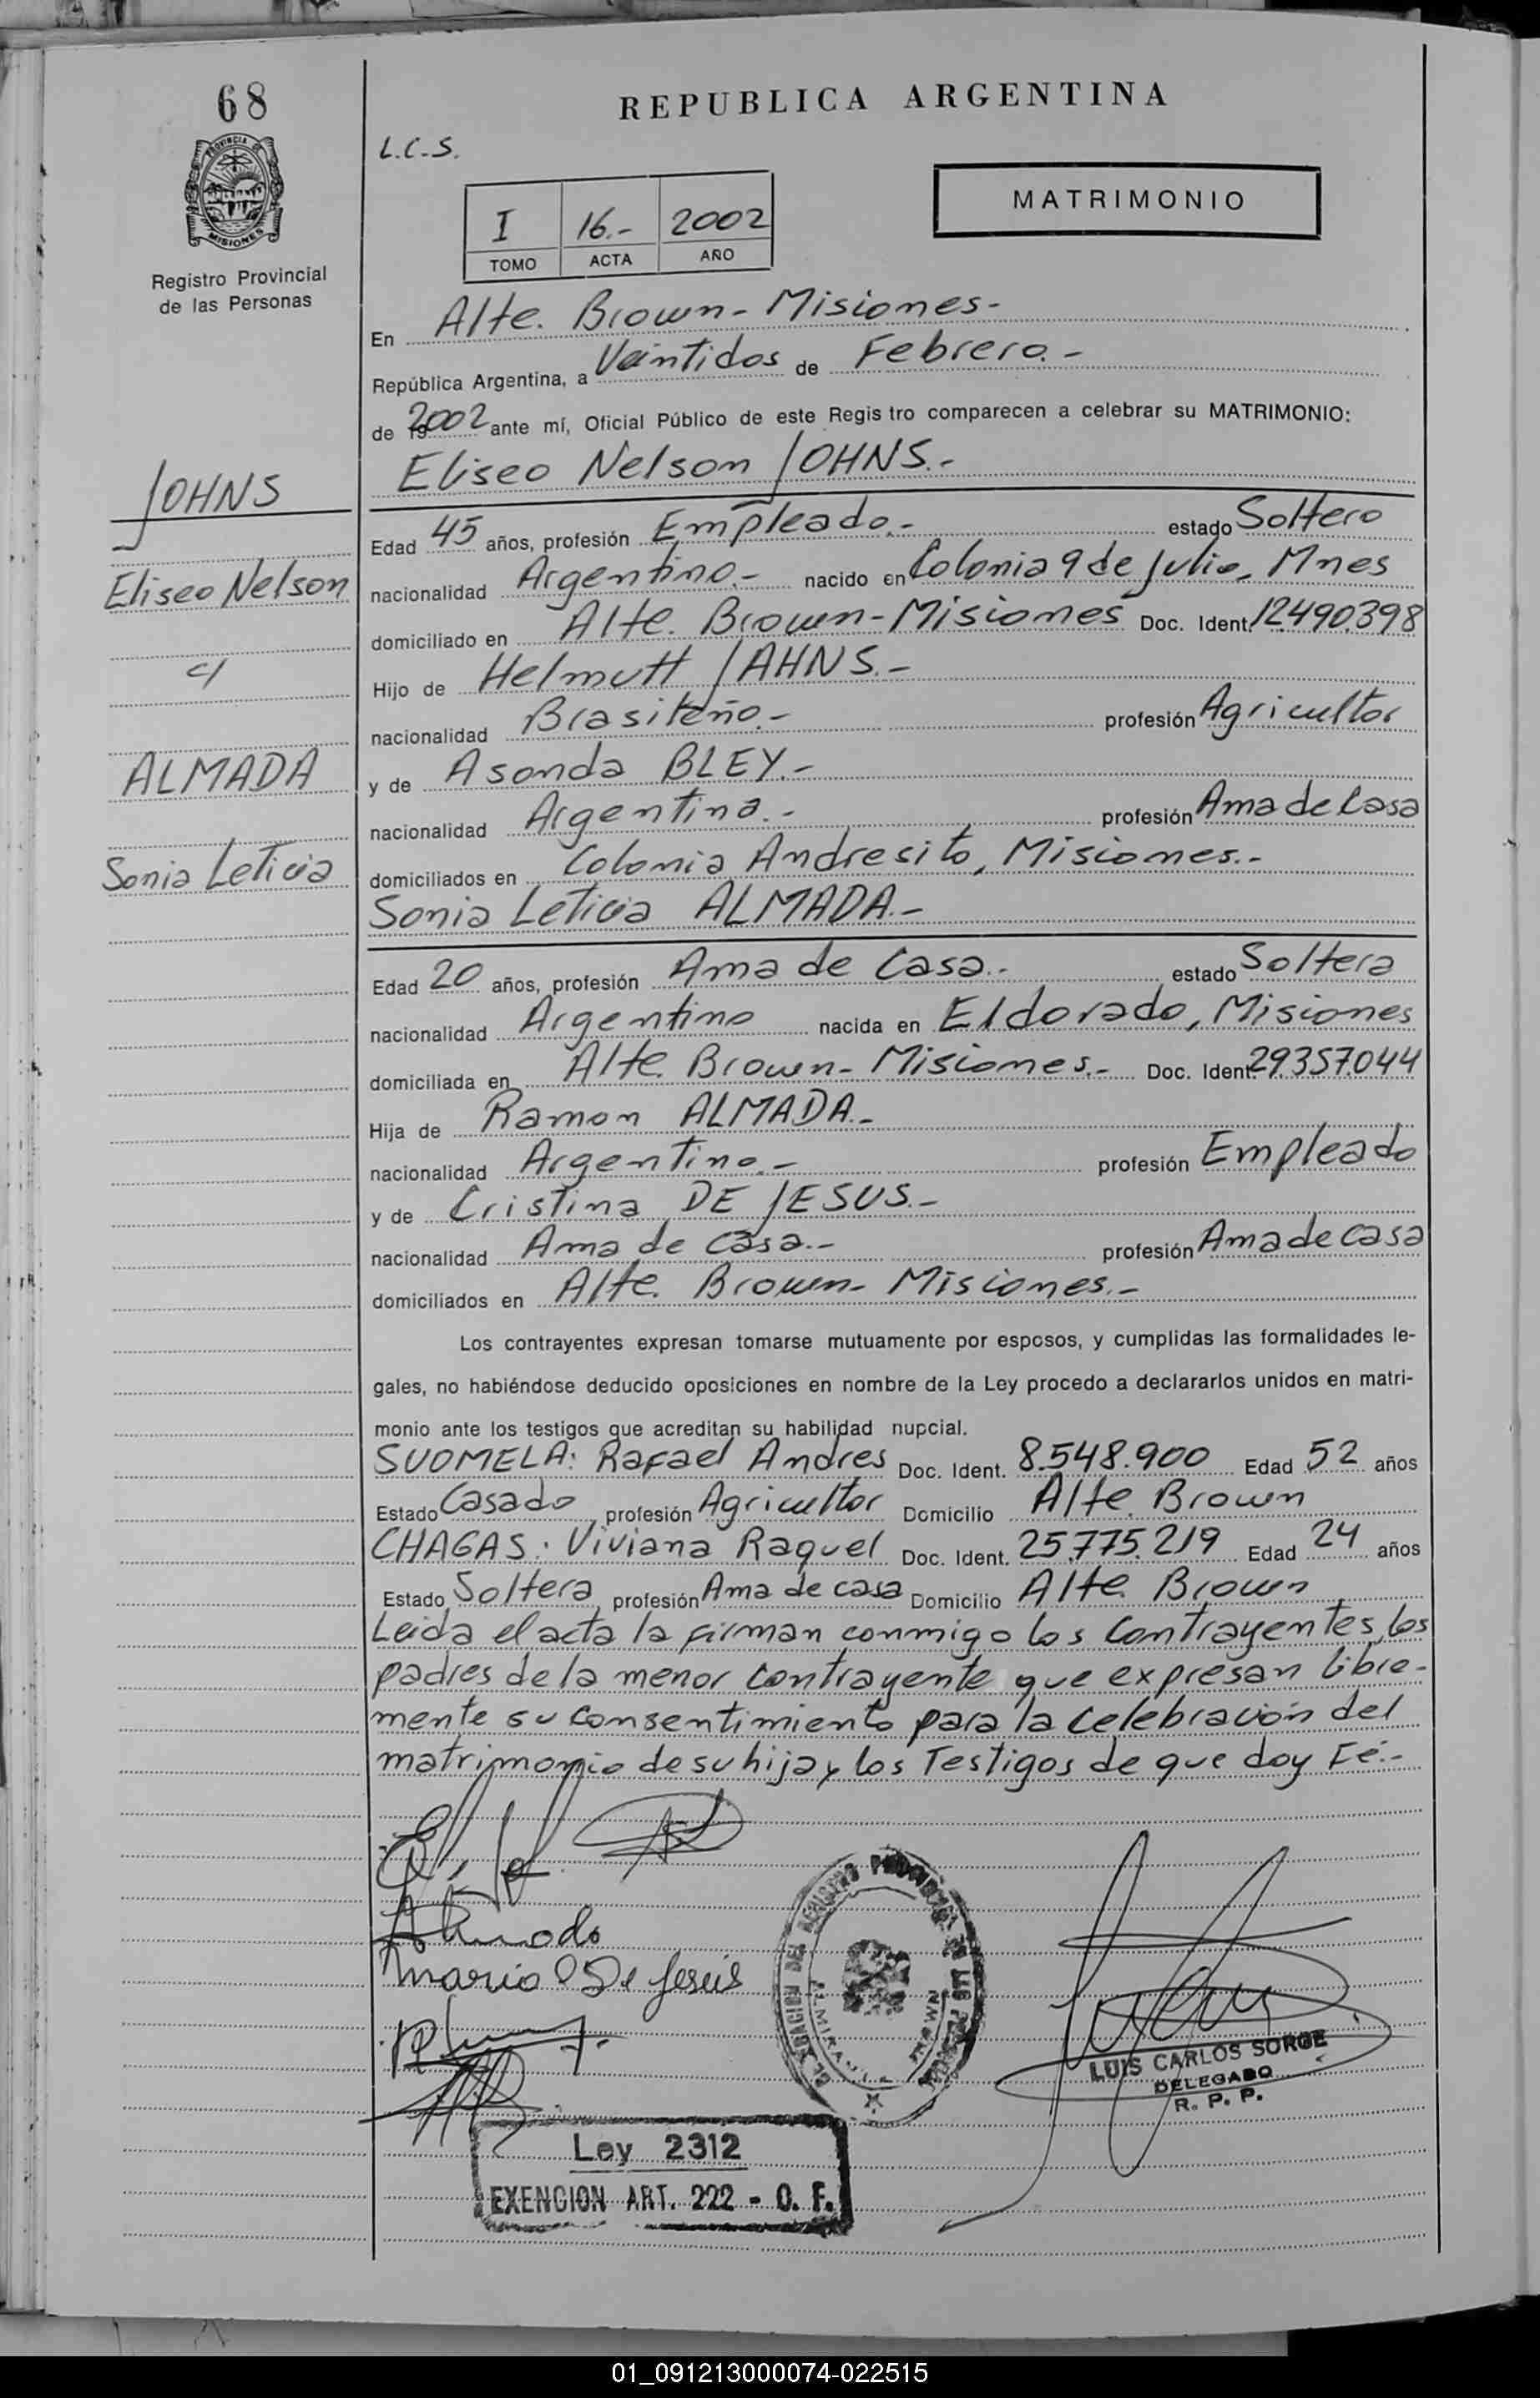 68
REPUBLICA ARGENTINA
PROVINCIA DE
MISIONES
L.C.S.
MATRIMONIO
I 16.- 2002
TOMO ACTA AÑO
Registro Provincial
de las Personas
En Alte. Brown - Misiones -
República Argentina, a Veintidos de Febrero. -
de 2002 ante mí, Oficial Público de este Registro comparecen a celebrar su MATRIMONIO:
Eliseo Nelson JOHNS. -
JOHNS
Edad 45 años, profesión Empleado. - estado Soltero
Eliseo Nelson
nacionalidad Argentino. - nacido en Colonia 9 de Julio, Mnes
domiciliado en Alte. Brown - Misiones Doc. Ident. 12.490.398
c/
Hijo de Helmutt JAHNS. -
nacionalidad Brasileño. - profesión Agricultor
ALMADA
y de Asonda BLEY. -
nacionalidad Argentina. - profesión Ama de Casa
Sonia Leticia
domiciliados en Colonia Andresito, Misiones. -
Sonia Leticia ALMADA. -
Edad 20 años, profesión Ama de Casa. - estado Soltera
nacionalidad Argentina nacida en Eldorado, Misiones
domiciliada en Alte. Brown - Misiones. - Doc. Ident. 29.357.044
Hija de Ramon ALMADA. -
nacionalidad Argentino. - profesión Empleado
y de Cristina DE JESUS. -
nacionalidad Ama de Casa. - profesión Ama de casa
domiciliados en Alte. Brown - Misiones. -
Los contrayentes expresan tomarse mutuamente por esposos, y cumplidas las formalidades le-
gales, no habiéndose deducido oposiciones en nombre de la Ley procedo a declararlos unidos en matri-
monio ante los testigos que acreditan su habilidad nupcial.
SUOMELA: Rafael Andres Doc. Ident. 8.548.900 Edad 52 años
Estado Casado profesión Agricultor Domicilio Alte. Brown
CHAGAS: Viviana Raquel Doc. Ident. 25.775.219 Edad 24 años
Estado Soltera profesión Ama de casa Domicilio Alte. Brown
Leida el acta la firman conmigo los Contrayentes, los
padres de la menor contrayente que expresan libre-
mente su consentimiento para la celebración del
matrimonio de su hija y los Testigos de que doy Fé. -
Almada
De Jesus
LUIS CARLOS SORGE
DELEGADO
R. P. P.
Ley 2312
EXENCION ART. 222 - O. F.
01_091213000074-022515